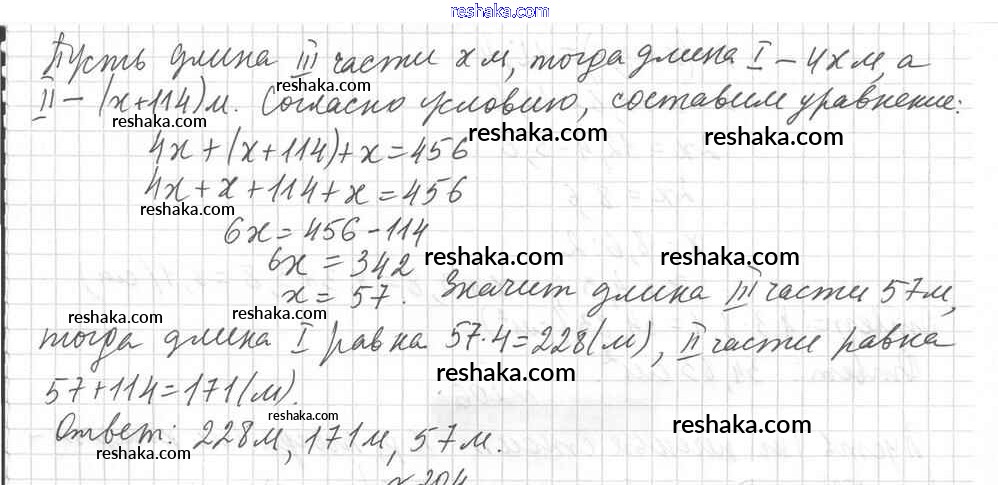 reshaka.com
Пусть длина III части x м, тогда длина I – 4x м, а
reshaka.com
II – (x+114) м. Согласно условию, составим уравнение:
reshaka.com reshaka.com reshaka.com
4x + (x + 114) + x = 456
4x + x + 114 + x = 456
reshaka.com
6x = 456 - 114
6x = 342
reshaka.com reshaka.com
x = 57. Значит длина III части 57 м,
reshaka.com reshaka.com
тогда длина I равна 57·4=228(м), II части равна
reshaka.com
57+114=171(м).
reshaka.com
Ответ: 228 м, 171 м, 57 м.
reshaka.com reshaka.com